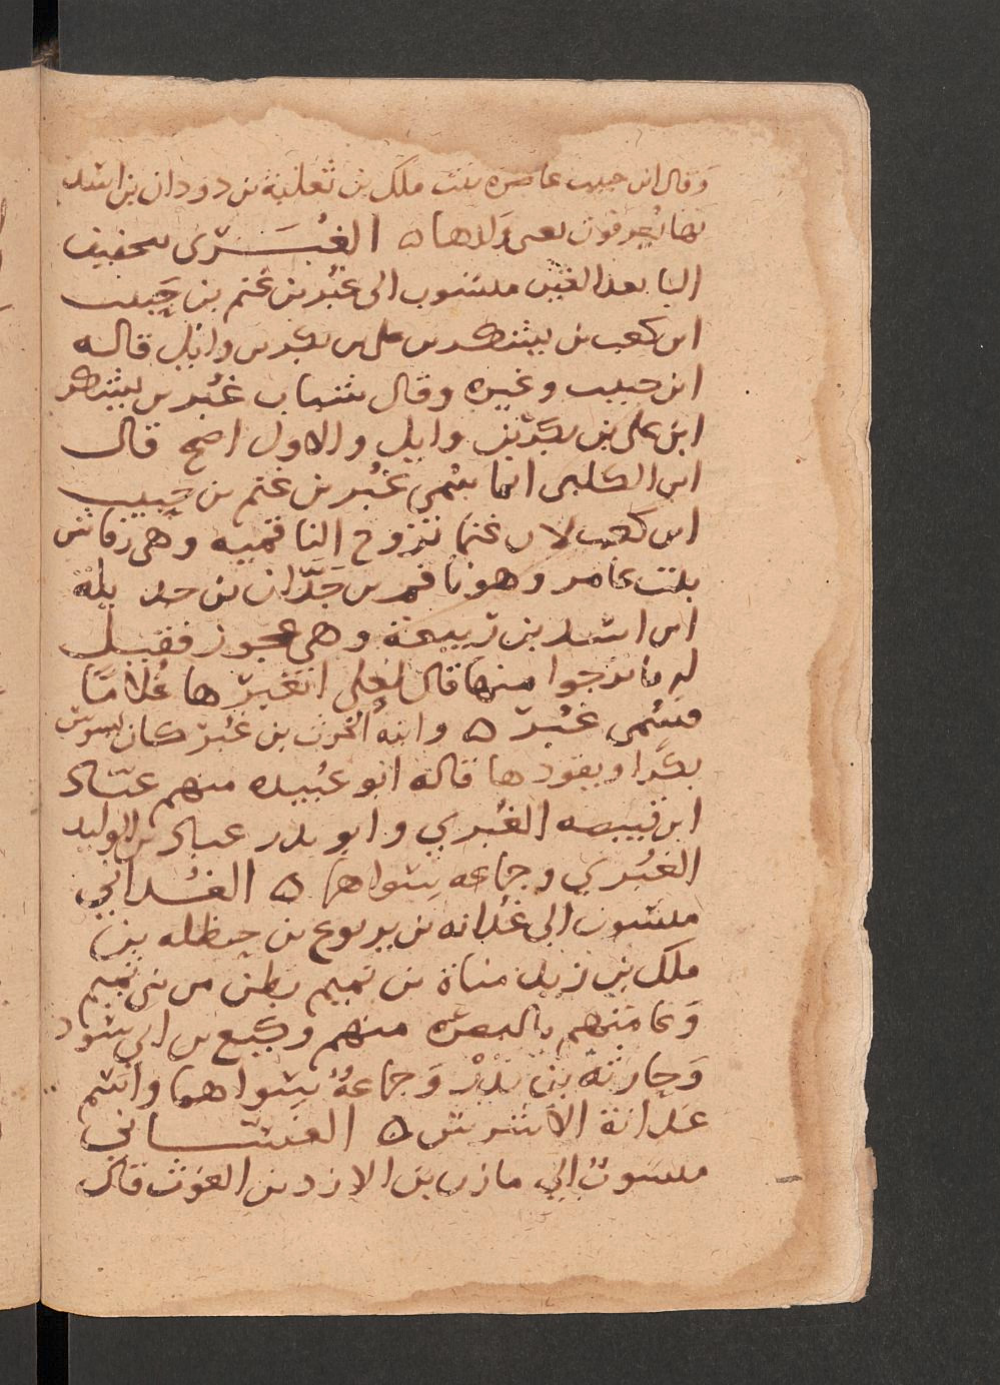 وقال ابن حبيب عاضره بنت ملك بن ثعلبة بن دودان بن اسد
بها يُعرفون يعنى وَلدها ۵ الغُبَــرى بتخفيف
البا بعد الغين منسوب الى غُبَر بن غنم بن حَبيب
ابن كعب بن يشكر بن على بن بكر بن وايل قاله
ابن حبيب وغيره وقال شباب غُبر بن يشكر
ابن على بن بكر بن وايل والاول اصح قال
ابن الكلبى انما سُمى غُبر بن غنم بن حَبيب
ابن كعب لان غنما تزوج الناقميه وهى رقاش
بنت عامر وهو ناقم بن جَدّان بن جديلة
ابن اسد بن ربيعة وهى عجوز فقيل
له ما ترجوا منها قال لعلى اتغبرها غُلامًا
فسُمى غُبر ۵ وابنهُ الحرث بن غُبر كان يسوس
بكرًا ويقودها قاله ابو عبيده منهم عبّاد
ابن قبيصه الغُبري وابو بدر عباد بن الوليد
الغُبري وجماعه سواهما ۵ الغُداني
منسوب الى غدانه بن يربوع بن حنظله بن
ملك بن زيد مناة بن تميم بطن من بنى تميم
وعامتهم بالبصره منهم وكيع بن ابى سود
وَحارثة بن بَدْر وَجماعةٌ سواهما واسم
غدانة الاشرس ۵ الغســاني
منسوبٌ الي مازن بن الازد بن الغوث قال